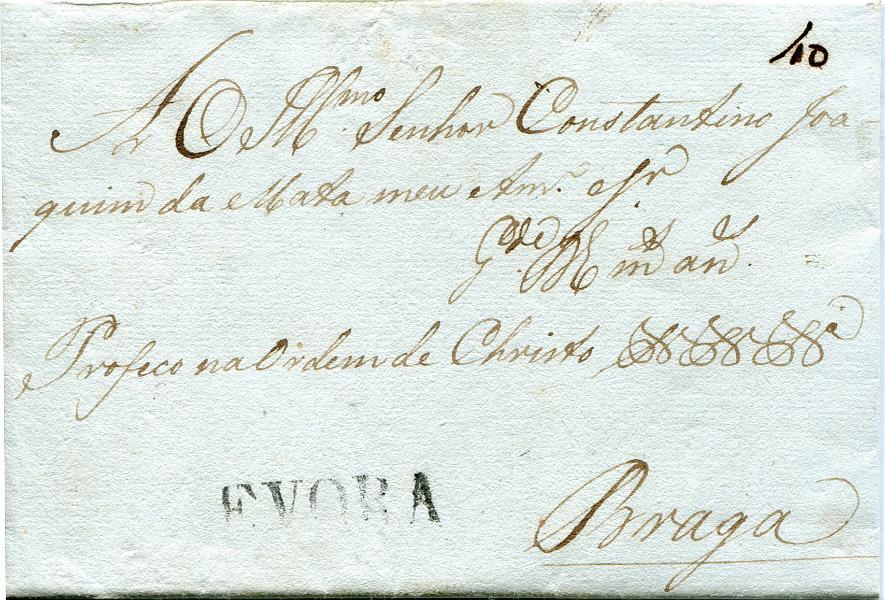 40
Ao Illmo Senhor Constantino Joa-
quim da Mata meu Amº. e Sr
Gde. ms. an.s
Profeco na Ordem de Christo &&&ª
EVORA
Braga